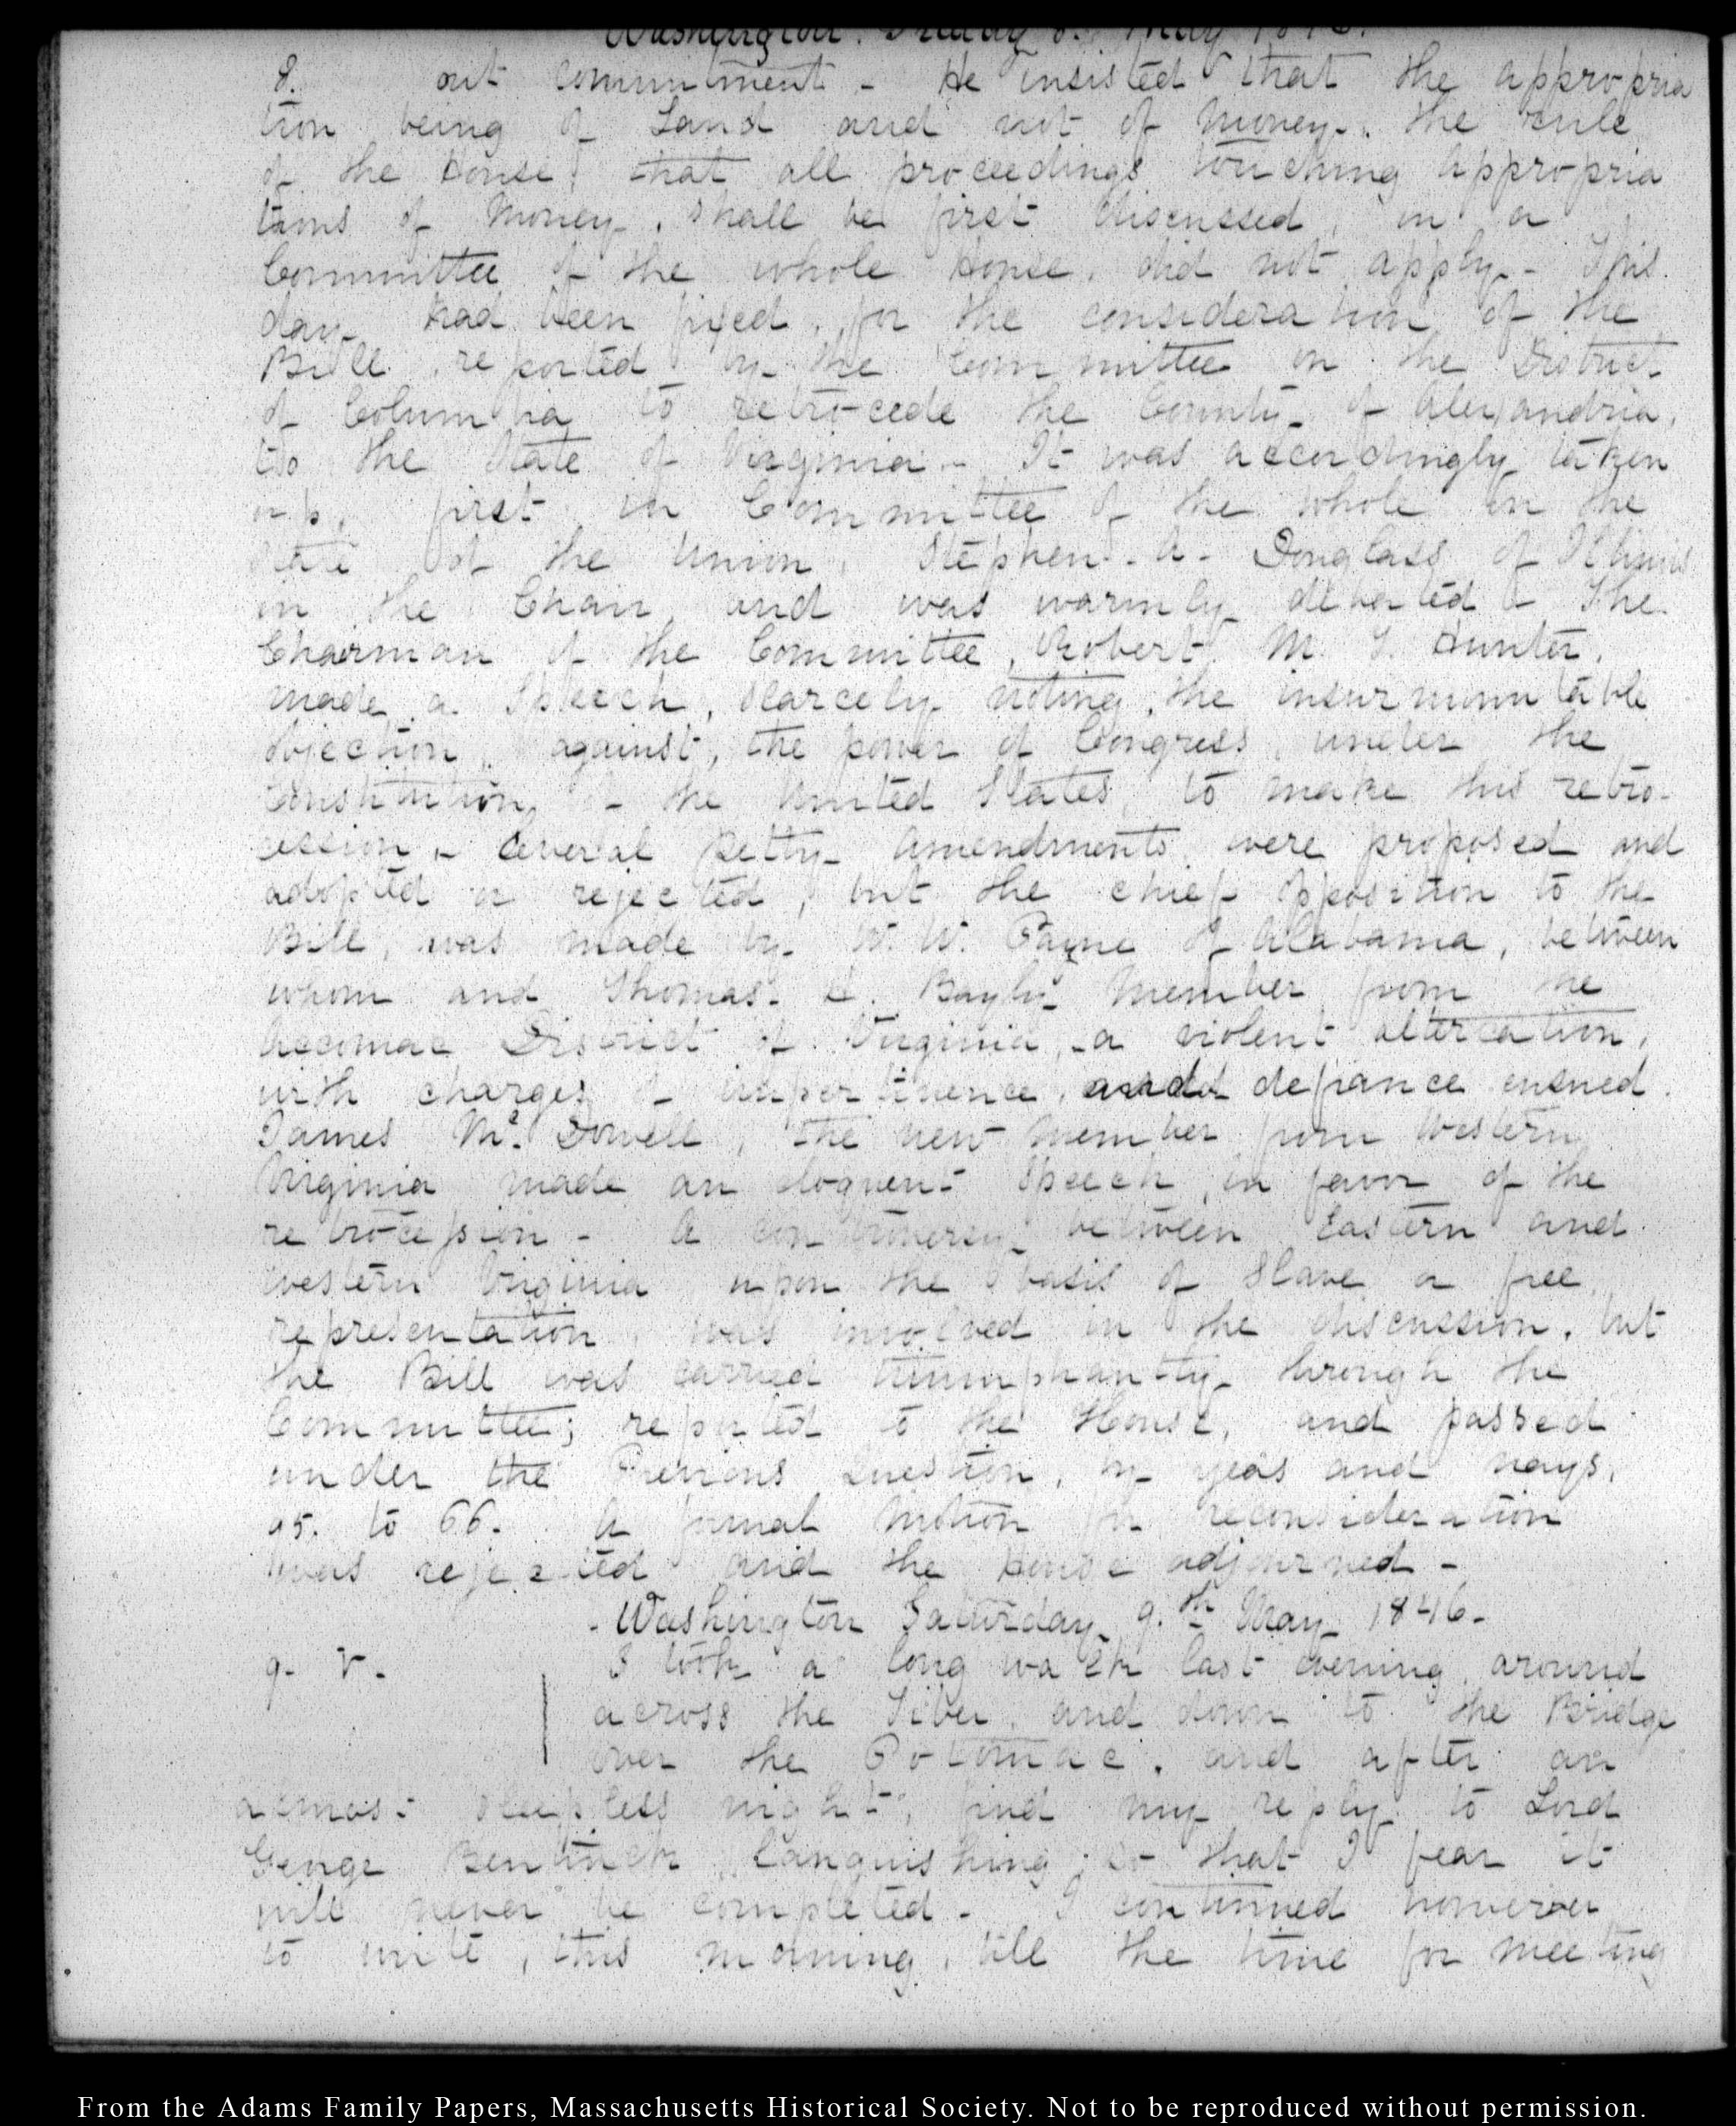 Washington. Friday 8. May 1846.
8. out commitment - He insisted that the appropria
tion being of Land and not of Money, the rule
of the House, that all proceedings touching appropria
tions of Money, shall be first discussed, in a
Committee of the whole House, did not apply - This
day had been fixed, for the consideration of the
Bill reported by the Committee on the District
of Columbia to retrocede the County of Alexandria,
to the State of Virginia - It was accordingly taken
up, first in Committee of the whole on the
state of the Union, Stephen A. Douglass of Illinois
in the Chair and was warmly debated - The
Chairman of the Committee, Robert M. T. Hunter,
made a Speech, scarcely noting, the insurmountable
objection, against, the power of Congress under the
Constitution of the United States, to make this retro-
cession - Several petty amendments were proposed and
adopted or rejected, but the chief opposition to the
Bill, was made by W. W. Payne of Alabama, between
whom and Thomas H. Bayly Member from the
Accomac District of Virginia, a violent altercation,
with charges of impertinence, and defiance ensued.
James Mc. Dowell, the new member from Western
Virginia made an eloquent Speech, in favor of the
retrocession - A controversy between Eastern and
western Virginia upon the basis of Slave or free
representation, was involved in the discussion, but
the Bill was carried triumphantly through the
Committee; reported to the House, and passed
under the Previous Question, by yeas and nays,
95. to 66. A formal motion for reconsideration
was rejected and the House adjourned -
Washington Saturday 9.th May 1846.
9. V. I took a long walk last evening around
across the Tiber, and down to the Bridge
over the Potomac, and after an
almost sleepless night, find my reply to Lord
George Bentinck languishing; so that I fear it
will never be completed - I continued however
to write, this morning, till the time for meeting
From the Adams Family Papers, Massachusetts Historical Society. Not to be reproduced without permission.